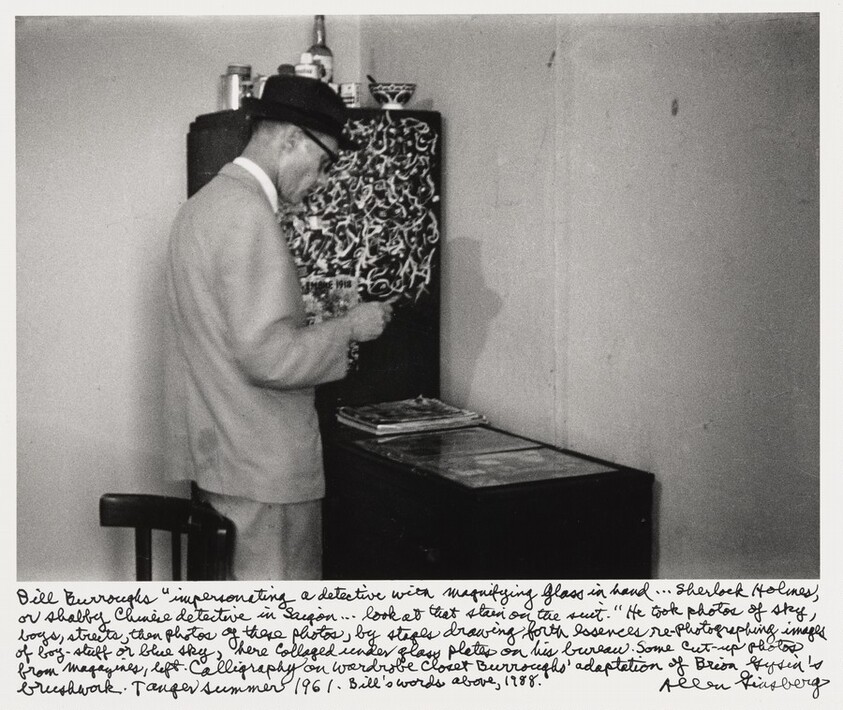 MORE 1918
Bill Burroughs "impersonating a detective with magnifying glass in hand... Sherlock Holmes,
or shabby Chinese detective in Saigon... look at that stain on the suit." He took photos of sky,
boys, streets, then photos of these photos, by stages drawing forth essences re-photographing images
of boy-stuff or blue sky, here collaged under glass plates on his bureau. Some cut-up photos
from magazines, left. Calligraphy on wardrobe closet Burroughs' adaptation of Brion Gysin's
brushwork. Tanger summer 1961. Bill's words above, 1988.
Allen Ginsberg